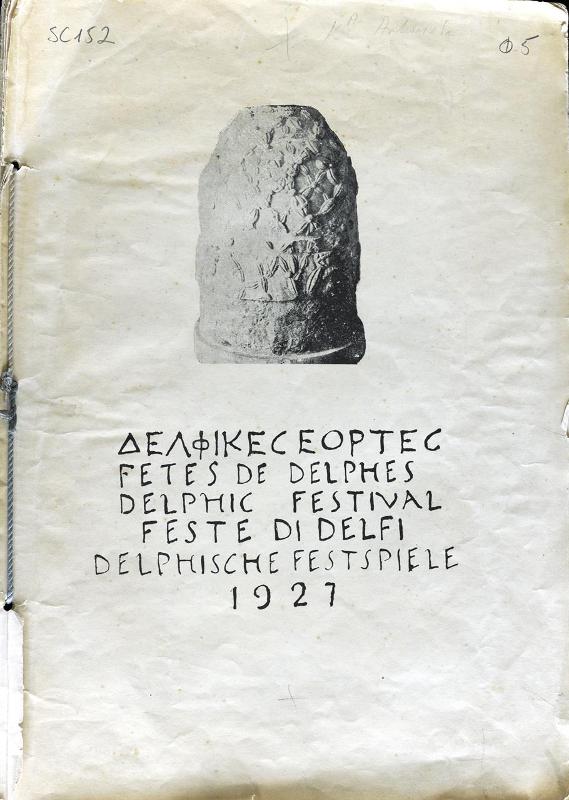 SC152
Φ5
ΔΕΛΦΙΚΕC ΕΟΡΤΕC
FETES DE DELPHES
DELPHIC FESTIVAL
FESTE DI DELFI
DELPHISCHE FESTSPIELE
1927